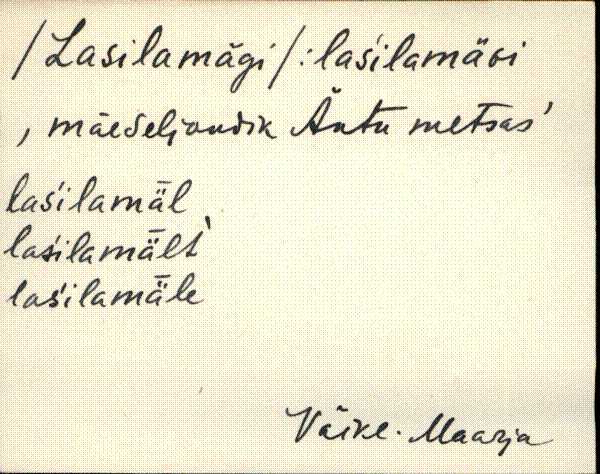 /Lasilamägi/: laśilamäɢi
, mäeseljandik Äntu metsas'
laśilamǟl
laśilamǟlt`
laśilamǟle
Väike-Maarja